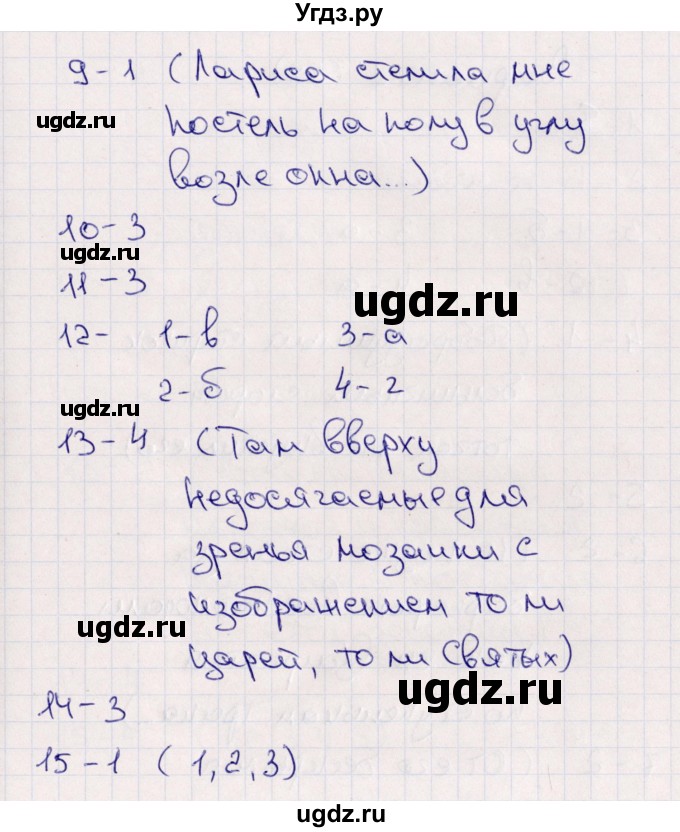 Угдз.ру
9-1 (Лариса стелила мне
ugdz.ru
постель на полу в углу
возле окна...)
10-3
ugdz.ru
11-3
ugdz.ru
12- 1-в 3-а
2-б 4-г
ugdz.ru
13-4 (Там вверху
недосягаемые для
зренья мозаики с
изображением то ли
ugdz.ru
царей, то ли святых)
ugdz.ru
14-3
15-1 (1,2,3)
ugdz.ru